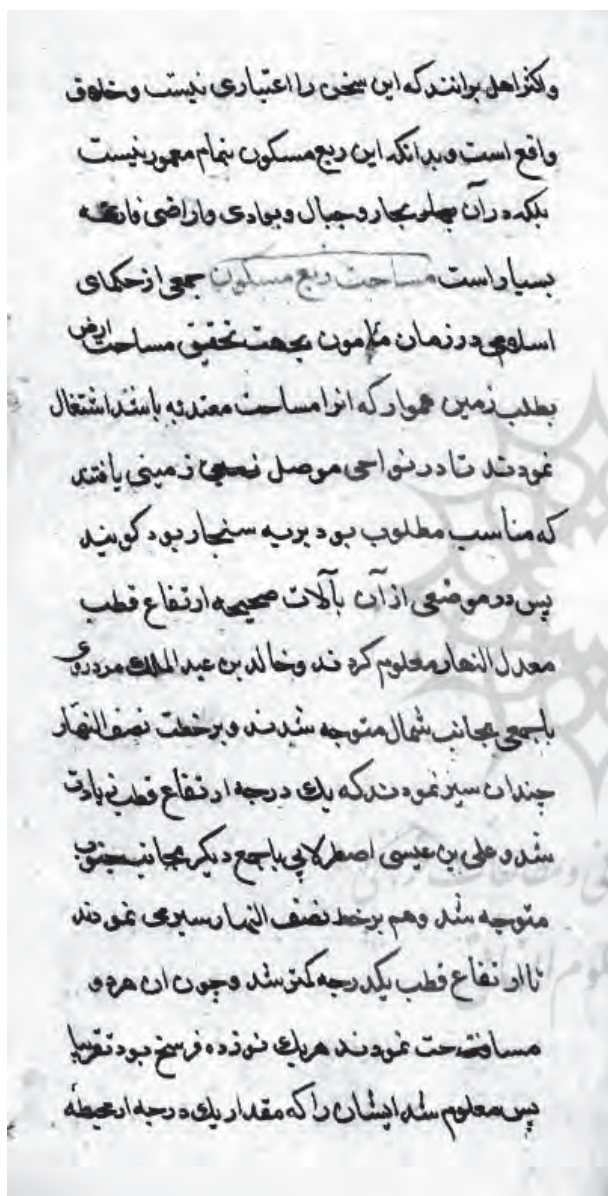 واکثر اهل برانند که این سخن را اعتباری نیست و خلاف
واقع است و بدانکه این ربع مسکون بتمام معمور نیست
بلکه در آن بحار و جبال و بوادی و اراضی
بسیار است مساحت ربع مسکون جمعی از حکمای
اسلامی در زمان مأمون بجهت تحقیق مساحت ارض
بطلب زمین هموار که آنرا مساحت معتدبه باشد اشتغال
نمودند تا در نواحی موصل زمینی یافتند
که مناسب مطلوب بود بریه سنجار بود گویند
پس در موضعی از آن بآلات صحیحه ارتفاع قطب
معدل النهار معلوم کردند و خالد بن عبد الملک مروردی
باجمعی بجانب شمال متوجه شدند و بر خط نصف النهار
چندان سیر نمودند که یک درجه ارتفاع قطب زیادت
شد و علی بن عیسی اصطرلابی باجمع دیگر بجانب جنوب
متوجه شد وهم بر خط نصف النهار سیر می نمودند
تا ارتفاع قطب یکدرجه کمتر شد و چون ان هر دو
مسافت نمودند هریک نوزده فرسخ بود تقریبا
پس معلوم شد ایشان را که مقدار یک درجه از محیطه